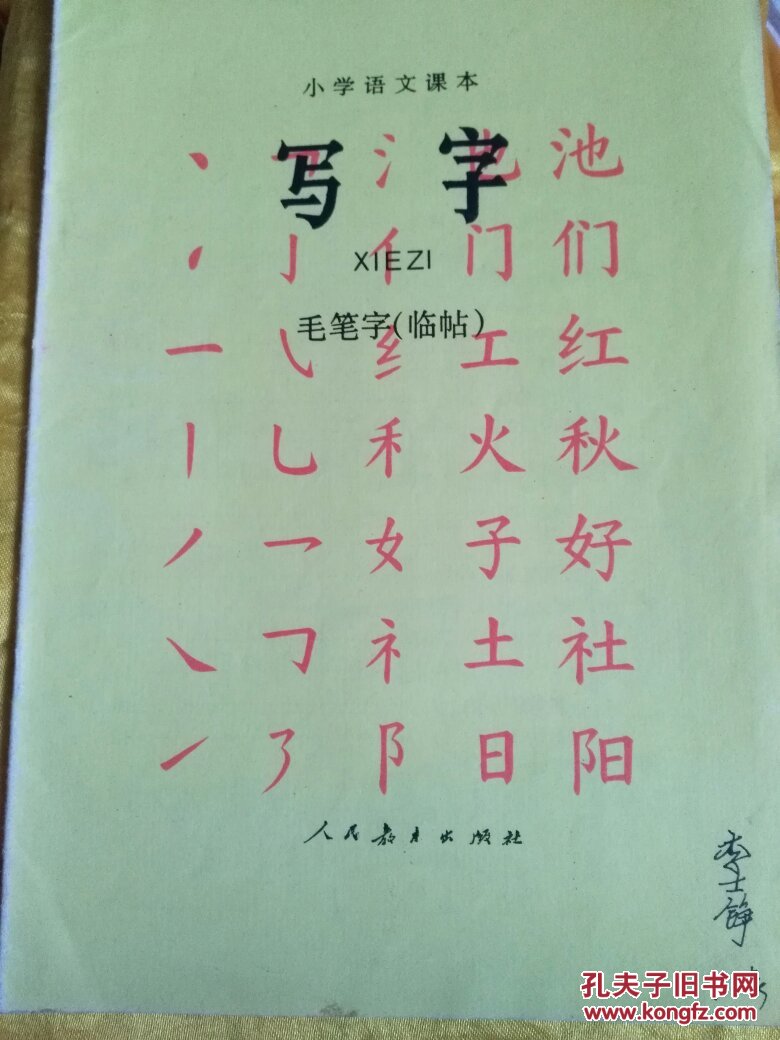 小学语文课本
写字
丶 乛 氵 也 池
亅 亻 门 们
XIEZI
毛笔字(临帖)
一 ㇂ 纟 工 红
丨 乚 禾 火 秋
丿 乛 女 子 好
㇏ 𠃍 礻 土 社
㇀ ㇌ 阝 日 阳
人民教育出版社
李士铮
孔夫子旧书网
www.kongfz.com